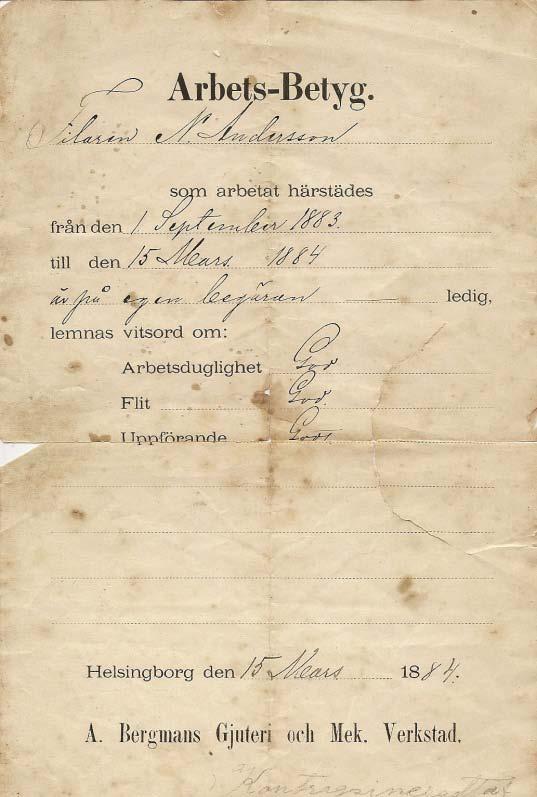 Arbets-Betyg.
Filaren N. Andersson
som arbetat härstädes
från den 1 September 1883.
till den 15 Mars. 1884
är på egen begäran — ledig,
lemnas vitsord om:
Arbetsduglighet God
Flit God.
Uppförande Godt
Helsingborg den 15 Mars 1884.
A. Bergmans Gjuteri och Mek. Verkstad.